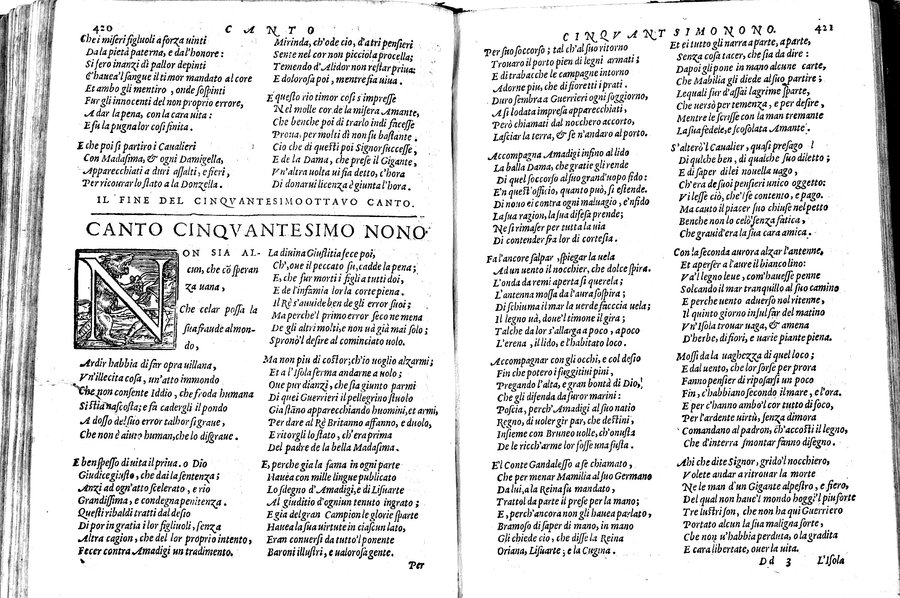 420 CANTO
Che i miseri figliuoli a forza uinti
Da la pietà paterna, e dal'honore:
Si fero inanzi di pallor depinti
C'hauea'l sangue il timor mandato al core
Et ambo gli mentiro, onde sospinti
Fur gli innocenti del non proprio errore,
A dar la pena, con la cara uita:
E fu la pugna lor cosi finita.
E che poi si partiro i Caualieri
Con Madasima, & ogni Damigella,
Apparecchiati a duri assalti, e fieri,
Per ricourar lo stato a la Donzella.
Mirinda, ch'ode cio, d'atri pensieri
Sente nel cor non picciola procella;
Temendo d'Alidor non restar priua:
E dolorosa poi, mentre sia uiua.
E questo rio timor cosi s'impresse
Nel molle cor de la misera Amante,
Che benche poi di trarlo indi facesse
Proua, per molti dì non fu bastante.
Cio che di questi poi Signor successe,
E de la Dama, che prese il Gigante,
Vn'altra uolta ui fia detto, c'hora
Di donarui licenza è giunta l'hora.
IL FINE DEL CINQVANTESIMOOTTAVO CANTO.
CANTO CINQVANTESIMO NONO
NON SIA AL-
cun, che cō speran
za uana,
Che celar possa la
sua fraude al mon-
do,
Ardir habbia di far opra uillana,
Vn'illecita cosa, un'atto immondo
Che non consente Iddio, che froda humana
Si stia nascosta; e fa cadergli il pondo
A dosso del suo error talhor sì graue,
Che non è aiuto human, che lo disgraue.
E ben spesso di uita il priua. o Dio
Giudice giusto, che dai la sentenza;
Anzi ad ogn'atto scelerato, e rio
Grandissima, e condegna penitenza.
Questi ribaldi tratti dal desio
Di por in gratia i lor figliuoli, senza
Altra cagion, che del lor proprio intento,
Fecer contra Amadigi un tradimento.
La diuina Giustitia fece poi,
Ch'oue il peccato fu, cadde la pena;
E, che fur morti i figli a tutti doi,
E de l'infamia lor la corte piena.
Il Rè s'auuide ben de gli error suoi;
Ma perche'l primo error seco ne mena
De gli altri molti, e non uà già mai solo;
Spronò'l desire al cominciato uolo.
Ma non piu di costor; ch'io uoglio alzarmi;
Et a l'Isola ferma andarne a uolo;
Oue pur dianzi, che sia giunto parmi
Di quei Guerrieri il pellegrino stuolo
Gia stāno apparecchiando huomini, et armi,
Per dare al Rè Britanno affanno, e duolo,
E ritorgli lo stato, ch'era prima
Del padre de la bella Madasima.
E, perche gia la fama in ogni parte
Hauea con mille lingue publicato
Lo sdegno d'Amadigi, e di Lisuarte
Al giuditio d'ogniun tenuto ingrato;
E gia del gran Campion le glorie sparte
Hauea la sua uirtute in ciascun lato,
Eran conuersi da tutto'l ponente
Baroni illustri, e ualorosa gente.
Per
CINQVANTSIMONONO. 421
Per suo soccorso; tal ch'al suo ritorno
Trouaro il porto pien di legni armati;
E di trabacche le campagne intorno
Adorne piu, che di fioretti i prati.
Duro sembra a Guerrieri ogni soggiorno,
A sì lodata impresa apparecchiati,
Però chiamati dal nocchero accorto,
Lasciar la terra, & se n'andaro al porto.
Accompagna Amadigi infino al lido
La balla Dama, che gratie gli rende
Di quel soccorso al suo grand'uopo fido:
E'n quest'officio, quanto può, si estende.
Di nouo ei contra ogni maluagio, e'nfido
La sua ragion, la sua difesa prende;
Ne si rimaser per tutta la uia
Di contender fra lor di cortesia.
Fa l'ancore salpar, spiegar la uela
Ad un uento il nocchier, che dolce spira.
L'onda da remi aperta si querela;
L'antenna mossa da l'aura sospira;
Di schiuma il mar la uerde faccia uela;
Il legno uà, doue'l timone il gira;
Talche da lor s'allarga a poco, a poco
L'erena, il lido, e l'habitato loco.
Accompagnar con gli occhi, e col desio
Fin che potero i fuggitiui pini,
Pregando l'alta, e gran bontà di Dio,
Che gli difenda da furor marini:
Poscia, perch'Amadigi al suo natio
Regno, di uoler gir par, che destini,
Insieme con Bruneo uolle, ch'onusta
De le ricch'arme lor fosse una fusta.
E'l Conte Gandalesso a se chiamato,
Che per menar Mamilia al suo Germano
Da lui, a la Reina fu mandato,
Trattol da parte il prese per la mano;
E, perch'ancora non gli hauea parlato,
Bramoso di saper di mano, in mano
Gli chiede ciò, che disse la Reina
Oriana, Lisuarte; e la Cugina.
Et ei tutto gli narra a parte, a parte,
Senza cosa tacer, che sia da dire:
Dapoi gli pone in mano alcune carte,
Che Mabilia gli diede al suo partire;
Lequali fur d'assai lagrime sparte,
Che uersò per temenza, e per desire,
Mentre le scrisse con la man tremante
La sua fedele, e scosolata Amante.
S'alterò'l Caualier, quasi presago
Di qulche ben, di qualche suo diletto;
E di saper di lei nouella uago,
Ch'era de suoi pensieri unico oggetto:
Vi lesse ciò, che'l fe contento, e pago.
Ma cauto il piacer suo chiuse nel petto
Benche non lo celò senza fatica,
Che grauid'era la sua cara amica.
Con la seconda aurora alzar l'antenne,
Et aperser a l'aure il bianco lino:
Va'l legno leue, com'hauesse penne
Solcando il mar tranquillo al suo camino
E perche uento aduerso nol ritenne,
Il quinto giorno in sul far del matino
Vn'Isola trouar uaga, & amena
D'herbe, di fiori, e uarie piante piena.
Mossi da la uaghezza di quel loco;
E dal uento, che lor forse per prora
Fanno pensier di riposarsi un poco
Fin, c'habbiano secondo il mare, e l'ora.
E per c'hanno ambo'l cor tutto di foco,
Per l'ardente uirtù, senza dimora
Comandano al padron, ch'accosti il legno,
Che d'interra smontar fanno disegno.
Ahi che dite Signor, grido'l nocchiero,
Volete andar a ritrouar la morte
Ne le man d'un Gigante alpestro, e fiero,
Del qual non haue'l mondo hoggi'l piu forte
Tre lustri son, che non ha qui Guerriero
Portato alcun la sua maligna sorte,
Che non u'habbia perduta, o la gradita
E cara libertate, ouer la uita.
Dd 3 L'Isola